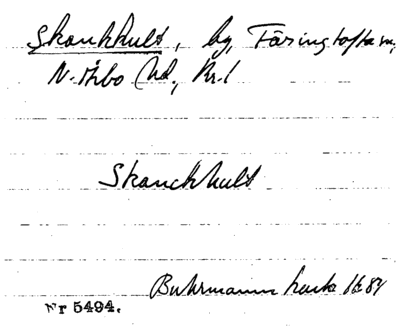 Skankhult, by, Färingtofta sn,
N. Åsbo hd, Kr. l
Skanckhult
Buhrmanns karta 1684
Nr 5494.